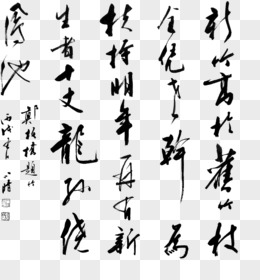 新竹高於舊竹枝
全凭老幹為
扶持明年再有新
生者十丈龍孫繞
鳳池
鄭板橋題竹